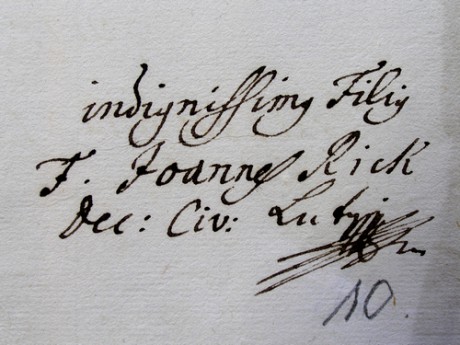 indignissimꝰ Filiꝰ
F. Joannes Rick
Dec: Civ:
10.